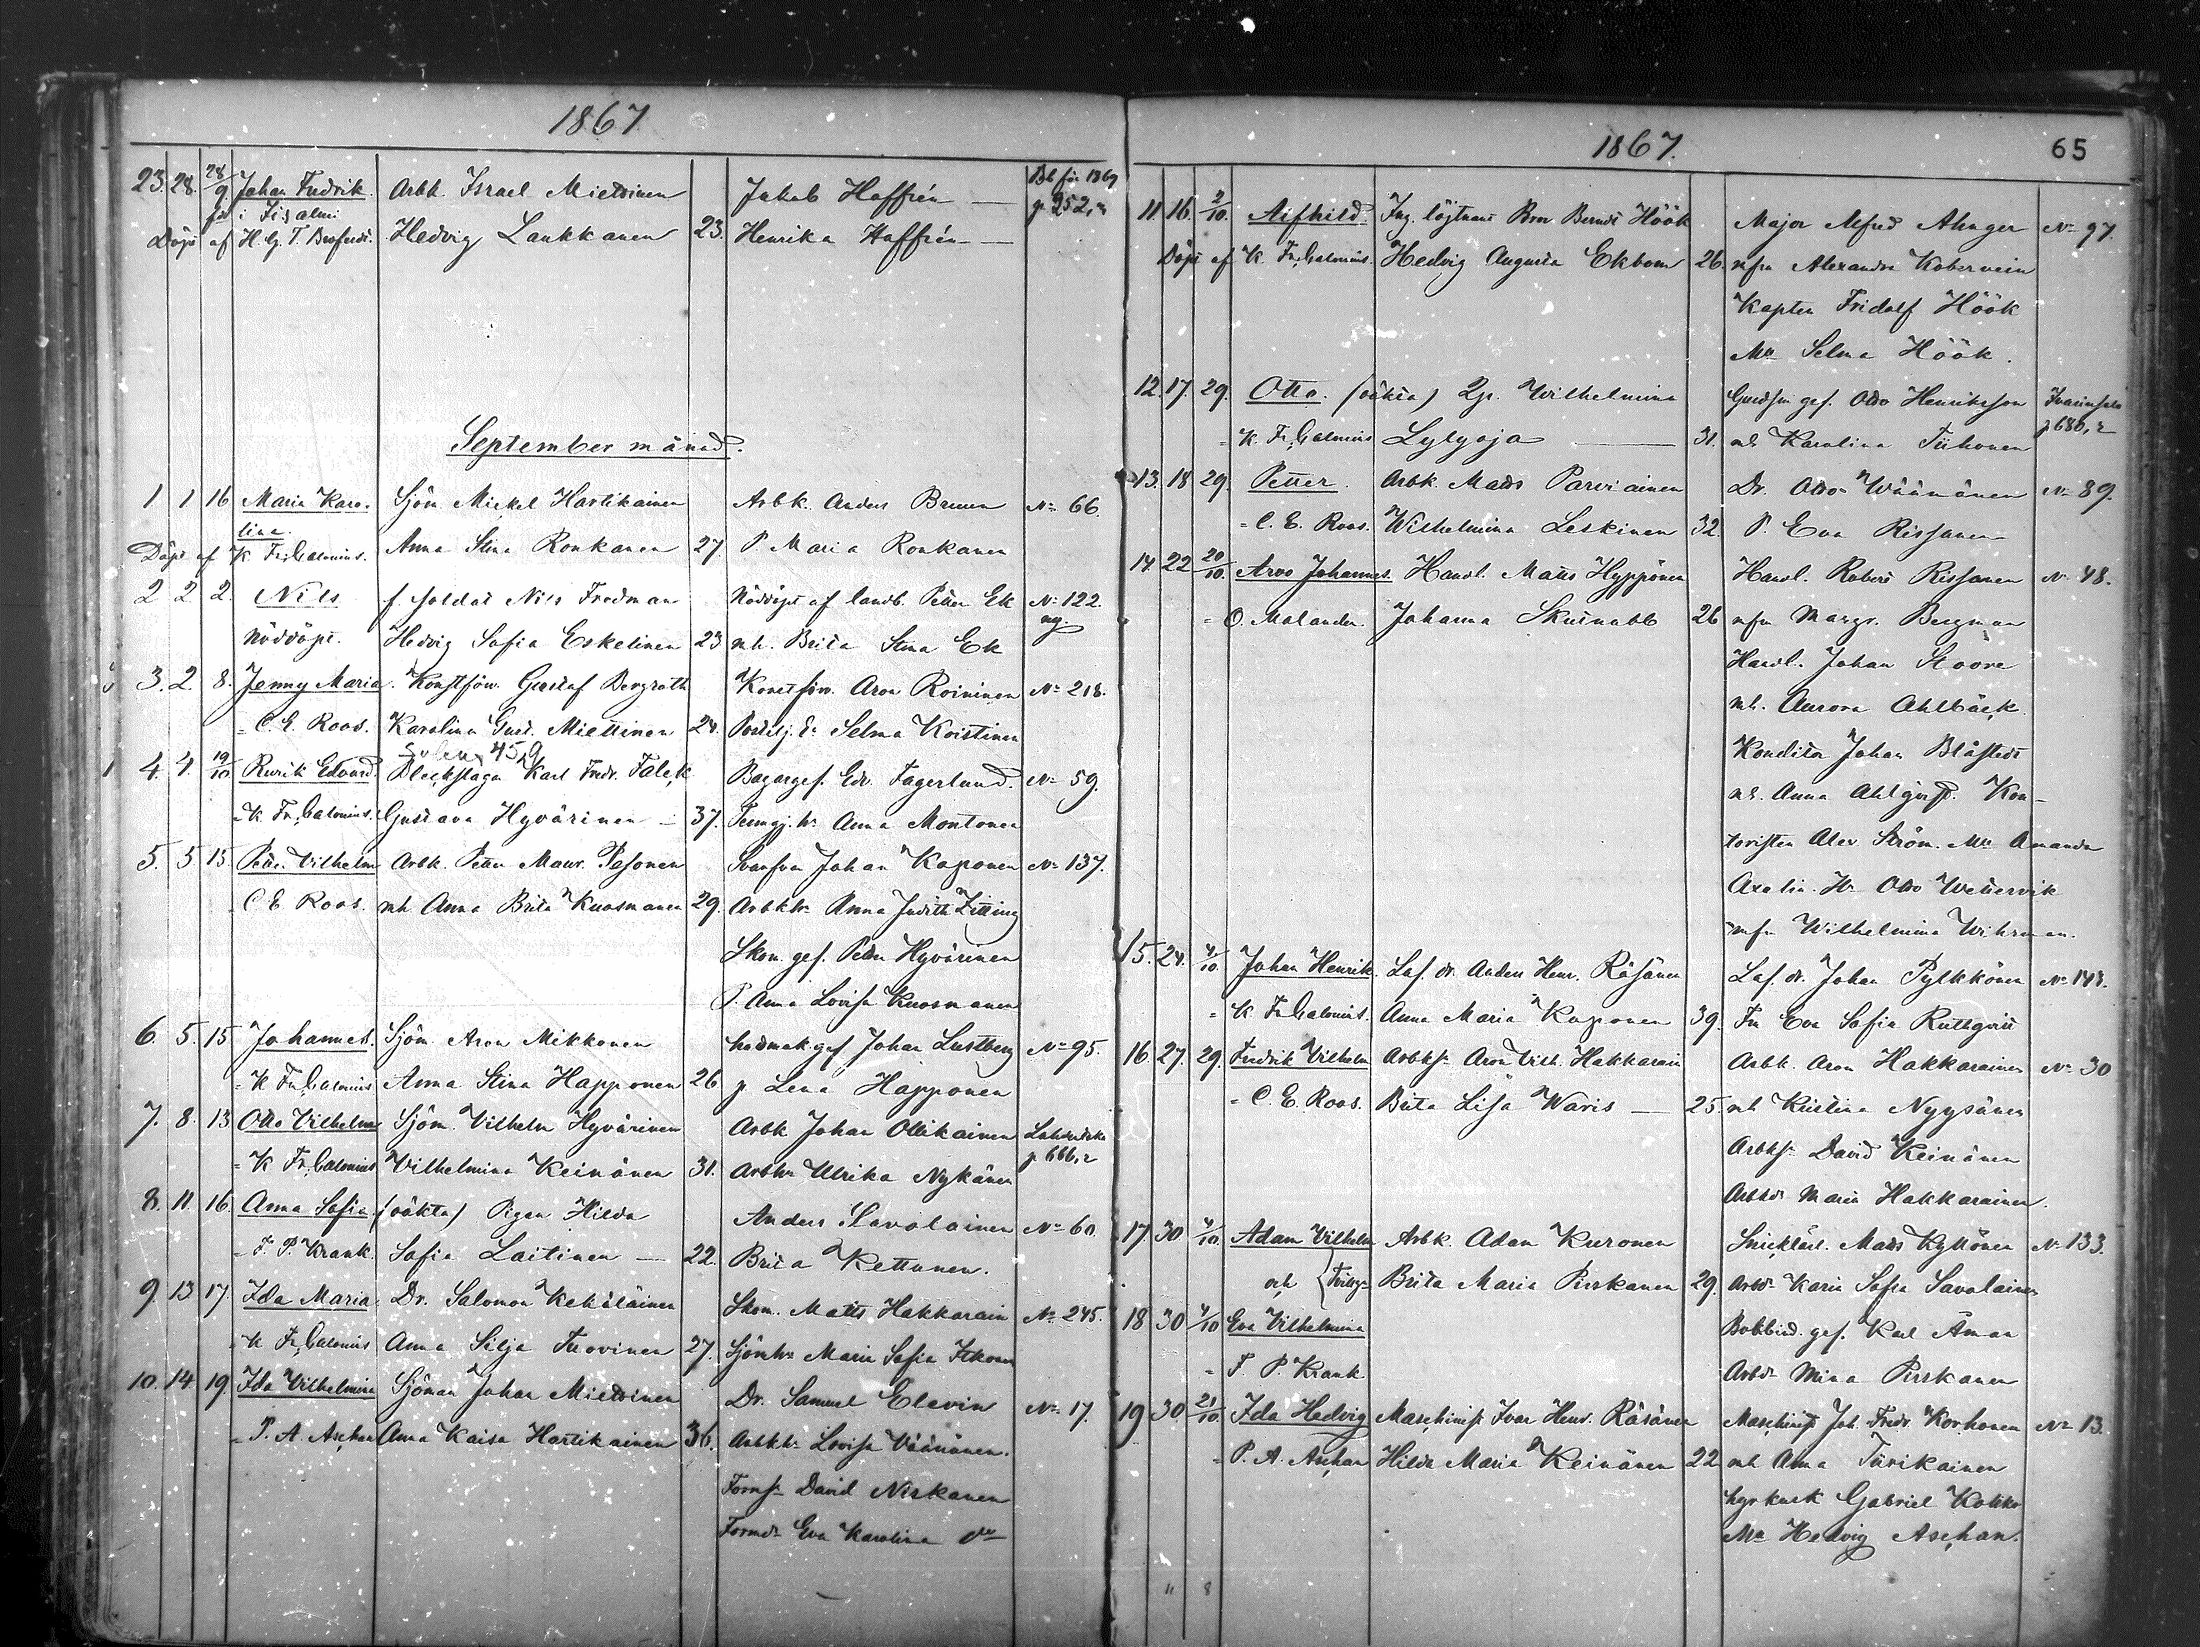 1867
23. 28. 28/9 Johan Fredrik Arbk. Israel Miettinen Jakob Haffrén — Bb för 1869
i Iisalmi p. 952,
Döpt af H. G. T. Hedvig Laukkanen 23. Henrika Haffrén —
September månad.
1 1 16 Maria Karo- Sjöm Mickel Hartikainen Arbk. Anders Brunen No 66.
lina.
Döpt af K. Fr. Calonius. Anna Stina Ronkanen 27 P. Maria Ronkanen
2 2 2. Nils f. soldat Nils Fredman Nöddöpt af landb. Petter Ek No 122.
Nöddöpt. Hedvig Sofia Eskelinen 23 mh. Brita Stina Ek
3. 2. 8. Jenny Maria. Konstförv. Gustaf Bergroth Konstförv. Aron Roininen No 218.
" C. E. Roos. Karolina Gust. Miettinen 24. Selma Koistinen
459
4. 4. 19/10 Rurik Edvard Bleckslaga Karl Fredr. Fäleck Bagargef. Edv. Fagerlund. No 59.
" K. Fr. Calonius. Gustava Hyvärinen — 37. Anna Montonen
5. 5 15. Petter Vilhelm Arbk. Petter Maur. Pasonen Johan Kaponen No 137.
C. E. Roos. mh Anna Brita Kuosmanen 29. Arbkhr Anna Judith Zitting
Skom. gef. Petter Hyvärinen
P. Anna Lovisa Kuosmanen
6. 5. 15 Johannes. Sjöm. Aron Mikkonen gef Johan Lustberg No 95.
" K. Fr. Calonius Anna Stina Happonen 26 p Lena Happonen
7. 8. 13 Otto Vilhelm Sjöm. Vilhelm Hyvärinen Arbk Johan Ollikainen
" K. Fr. Calonius Vilhelmina Keinänen 31. Arbkhr Ulrika Nykänen p 666,
8. 11 16 Anna Sofia (oäkta) Pigan Hilda Anders Savolainen No 60.
" F. P. Krank. Sofia Laitinen — 22. Brita Kettunen.
9 13 17. Ida Maria Dr. Salomon Kekäläinen Skom. Matts Hakkarain No 245.
" K. Fr. Calonius Anna Silja Tuovinen 27. Sjömhr Maria Sofia
10. 14. 19 Ida Vilhelmina Sjöman Johan Miettinen Dr. Samuel Elevin No 17.
" P. A. Aschan Anna Kaisa Hartikainen 36. Arbkhr Lovisa Väänänen.
David Niskanen
Eva Karolina do
1867. 65
11 16. 2/10. Aifhild. Ing. löjtnant Bror Berndt Höök Major Alfred Ahnger No 97.
Döpt af K. Fr. Calonius. Hedvig Augusta Ekbom 26. mfru Alexandra Kobervein
Kapten Fridolf Höök
Mll Selma Höök.
12. 17. 29. Otto. (oäkta) Qp. Wilhelmina gef. Otto Henriksson
" K. Fr. Calonius Lylyoja — 31. mh Karolina Tiihonen p 680,
13. 18 29. Petter. Arbk. Mats Parviainen Dr. Otto Wäänänen No 89.
" C. E. Roos. Wilhelmina Leskinen 32. P. Eva Rissanen
14. 22 20/10. Arvo Johannes. Handl. Matts Hyppönen Handl. Robert Rissanen No 48.
" O. Malander. Johanna Skutnabb 26 mfru Margr. Bergman
Handl. Johan Stoore
mh. Aurora Ahlbäck
Konditor Johan Blåfieldt
mh. Anna Ahlqvist. Kon-
toristen Alex. Ström. Mll Amanda
Axelin. Hr Otto Wettervik
mfru Wilhelmina Wihrman.
15. 24. 4/10. Johan Henrik. Laf. dr. Anders Henr. Räsänen Laf. dr. Johan Pylkkönen No 148.
" K. Fr. Calonius. Anna Maria Kaponen 39. Fru Eva Sofia Ruthqvist
16. 27. 29. Fredrik Vilhelm Arbksn Aron Vilh. Hakkarain Arbk. Aron Hakkarainen No 30
" C. E. Roos. Brita Lisa Waris — 25. mh Kristina Nyyssönen
Arbksn David Keinänen
Arbkdr Maria Hakkarainen.
17 30 4/10 Adam Vilhelm Arbk. Adam Kuronen Mats Kyllönen No 133.
och Tvill. Brita Maria Pirskanen 29. Arbdr Karin Sofia Savolainen
18 30 4/10 Eva Vilhelmina Bokbind. gef. Karl Åman
" F. P. Krank Arbdr Mina Pirskanen
19 30 21/10. Ida Hedvig Maschinist Ivar Henr. Räsänen Maschinist Joh. Fredr. Korhonen No 13.
" P. A. Aschan Hilda Maria Keinänen 22 mh Anna Turikainen
Gabriel Kokko
Mll Hedvig Aschan.